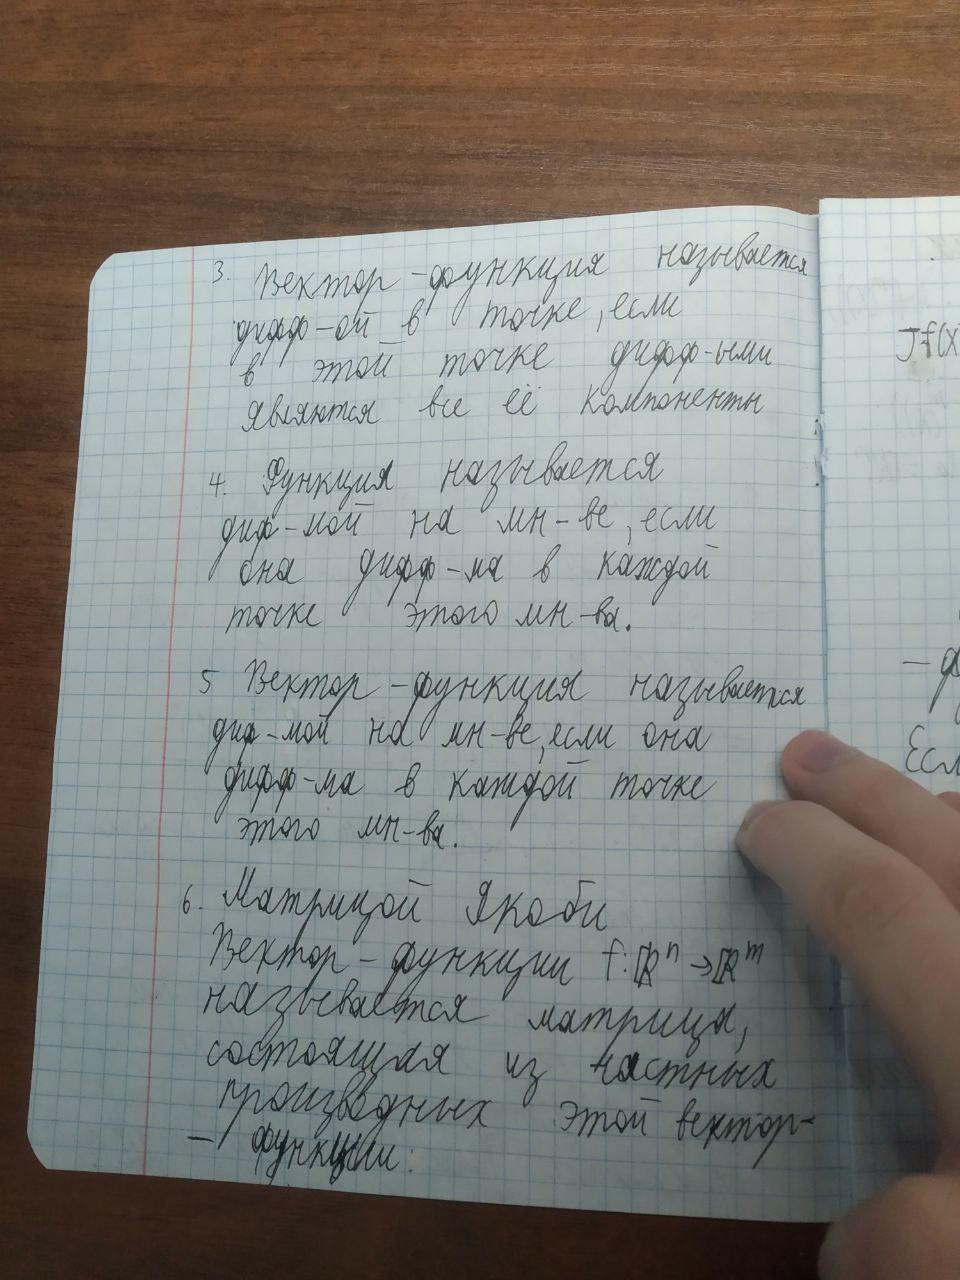 3. Вектор-функция называется
дифф-ой в точке, если
в этой точке дифф-ыми
являются все её компоненты
4. Функция называется
диф-мой на мн-ве, если
она дифф-ма в каждой
точке этого мн-ва.
5 Вектор-функция называется
диф-мой на мн-ве, если она
дифф-ма в каждой точке
этого мн-ва.
6. Матрицой Якоби
Вектор-функции f: ℝⁿ → ℝᵐ
называется матрица,
состоящая из частных
производных этой вектор-
- функции:
Jf(x
- ф
Есл